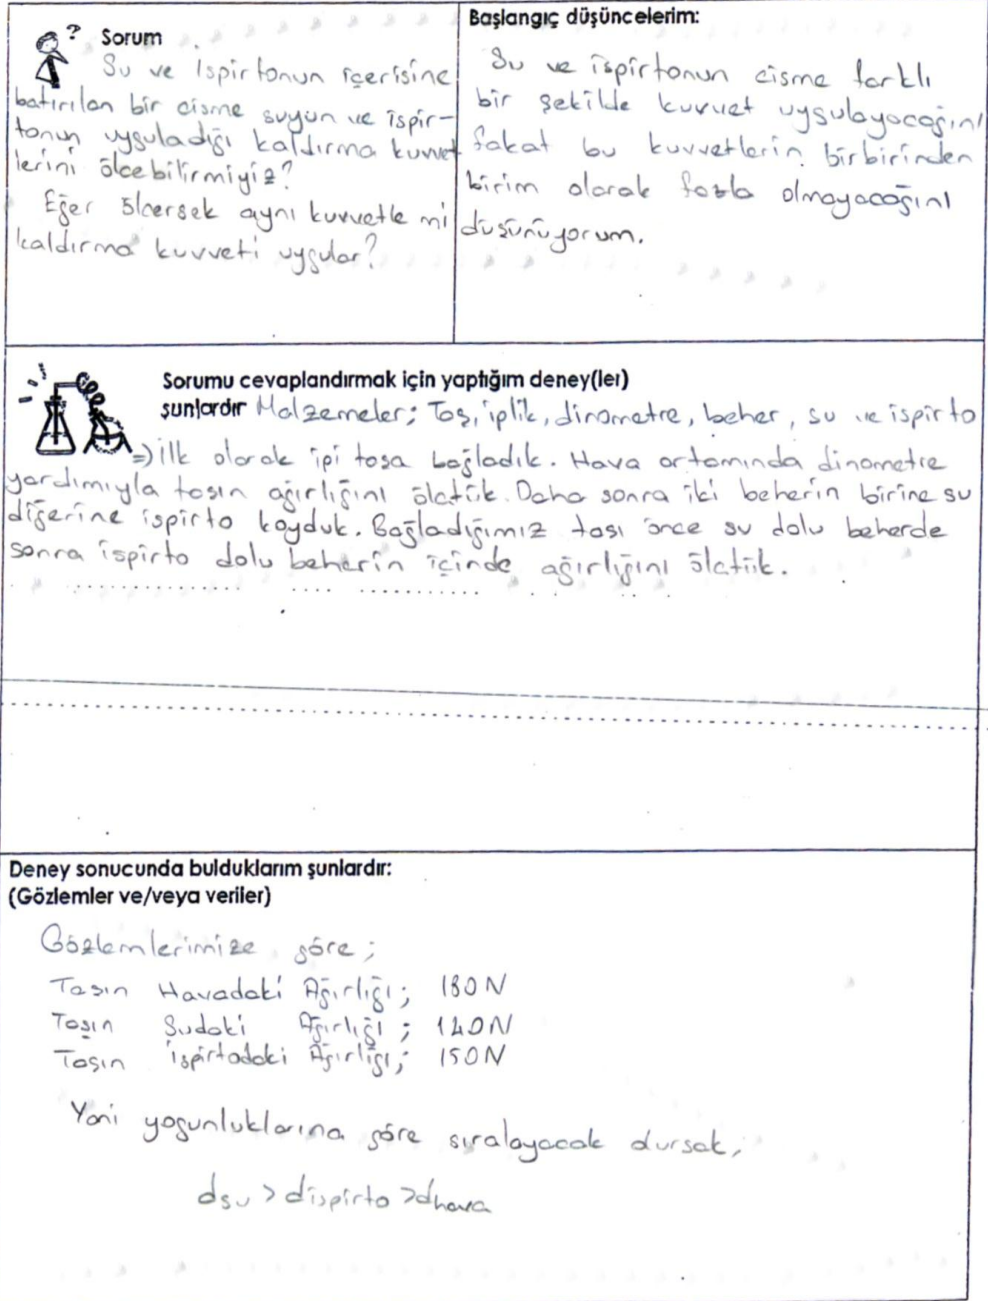 ?
Sorum
Su ve İspirtonun içerisine
batırılan bir cisme suyun ve ispir-
tonun uyguladığı kaldırma kuvvet
lerini ölçebilirmiyiz?
Eğer ölçersek aynı kuvvetle mi
kaldırma kuvveti uygular?
Başlangıç düşüncelerim:
Su ve ispirtonun cisme farklı
bir şekilde kuvvet uygulayacağını
fakat bu kuvvetlerin birbirinden
birim olarak fazla olmayacağını
düşünüyorum.
Sorumu cevaplandırmak için yaptığım deney(ler)
şunlardır Malzemeler; Taş, iplik, dinometre, beher, su ve ispirto
=) İlk olarak ipi taşa bağladık. Hava ortamında dinometre
yardımıyla taşın ağırlığını ölçtük. Daha sonra iki beherin birine su
diğerine ispirto koyduk. Bağladığımız taşı önce su dolu beherde
sonra ispirto dolu beherin içinde ağırlığını ölçtük.
Deney sonucunda bulduklarım şunlardır:
(Gözlemler ve/veya veriler)
Gözlemlerimize göre;
Taşın Havadaki Ağırlığı; 180N
Taşın Sudaki Ağırlığı; 140N
Taşın İspirtodaki Ağırlığı; 150N
Yani yoğunluklarına göre sıralayacak dursak;
dsu > dispirto > dhava